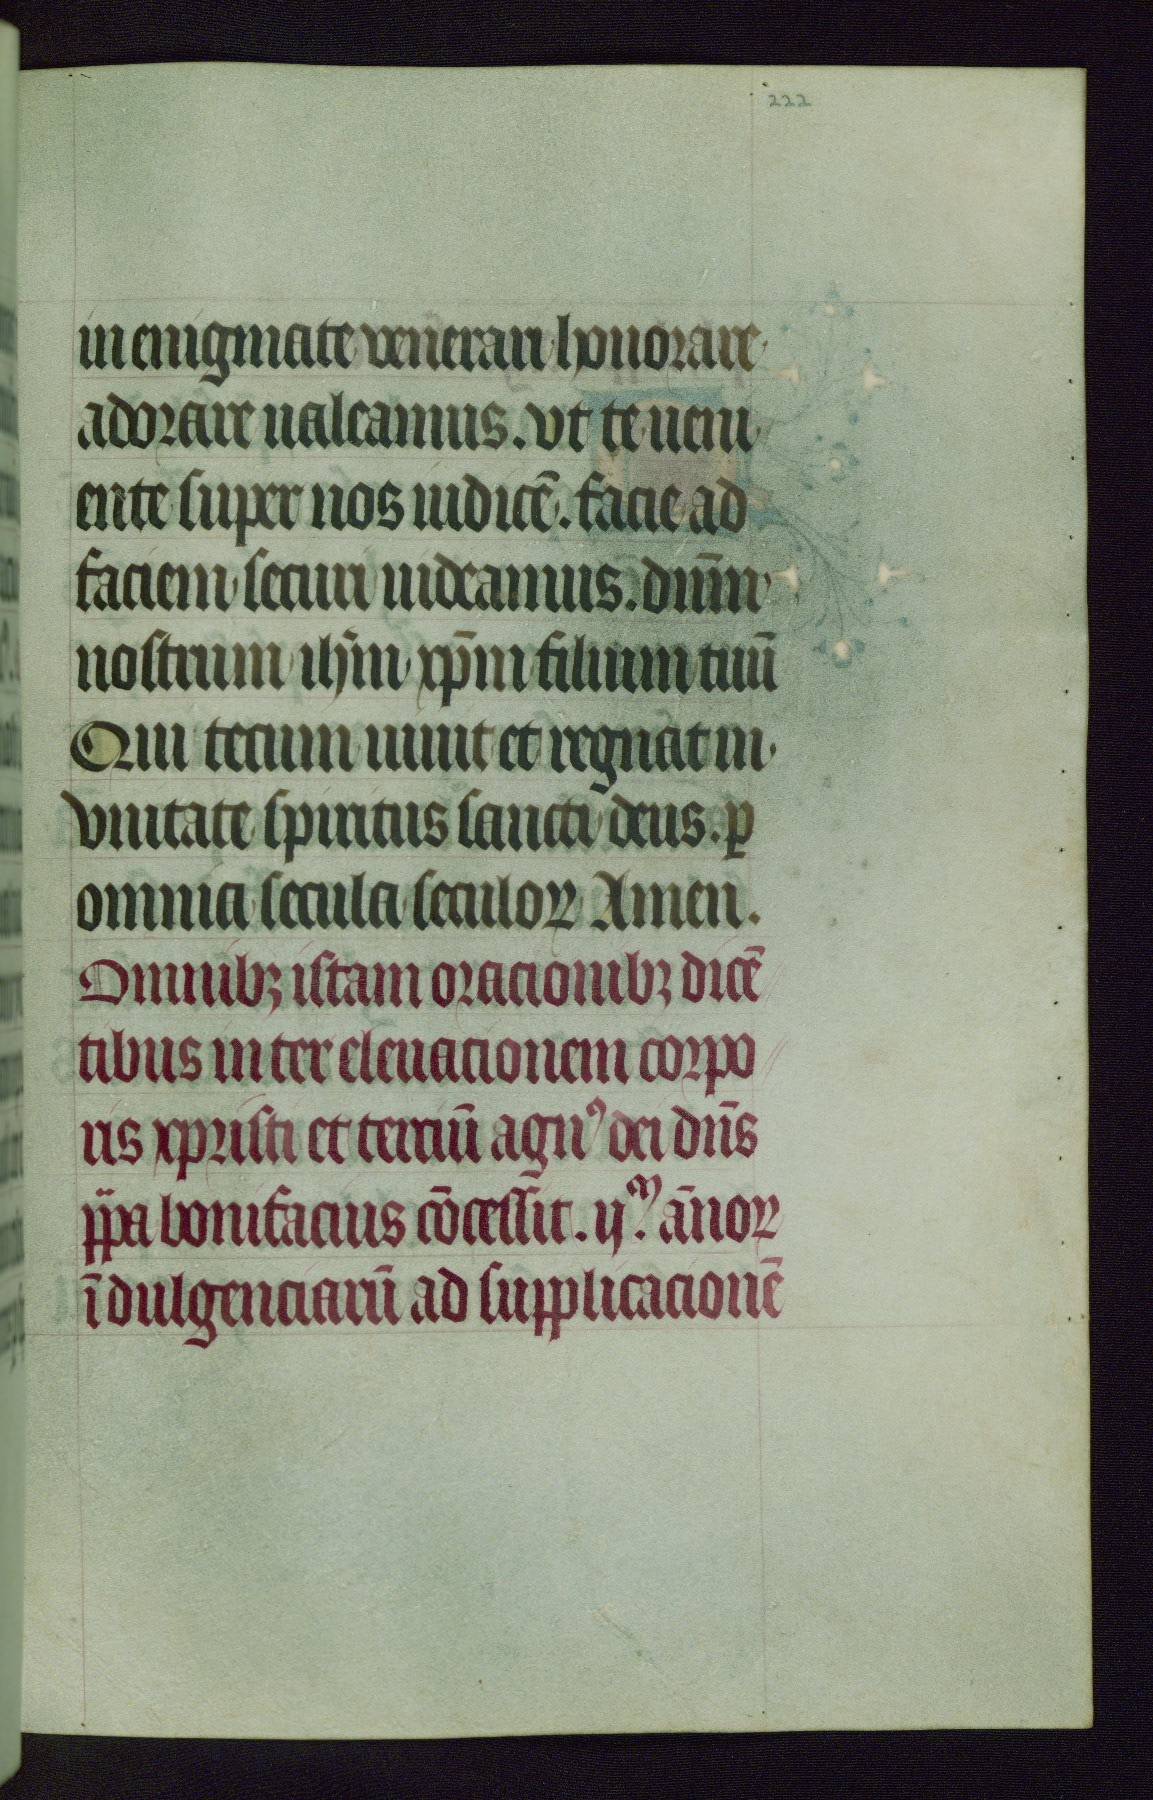 222
in enigmate venerari honorare
adorare ualeamus. vt te ueni
ente super nos iudicē. facie ad
faciem securi uideamus. dn̄m
nostrum ihm̄ xp̄m filium tuū
Qui tecum uiuit et regnat in
vnitate spiritus sancti deus. ꝑ
omnia secula seculoꝝ Amen.
Omnibꝫ istam oracionibꝫ dicē
tibus inter eleuacionem corpo
ris xpristi et terciū agnꝰ dei dn̄s
pp̄a bonifacius cōcessit. ijᵐ. ān̄oꝝ
īdulgenciarū ad supplicacionē